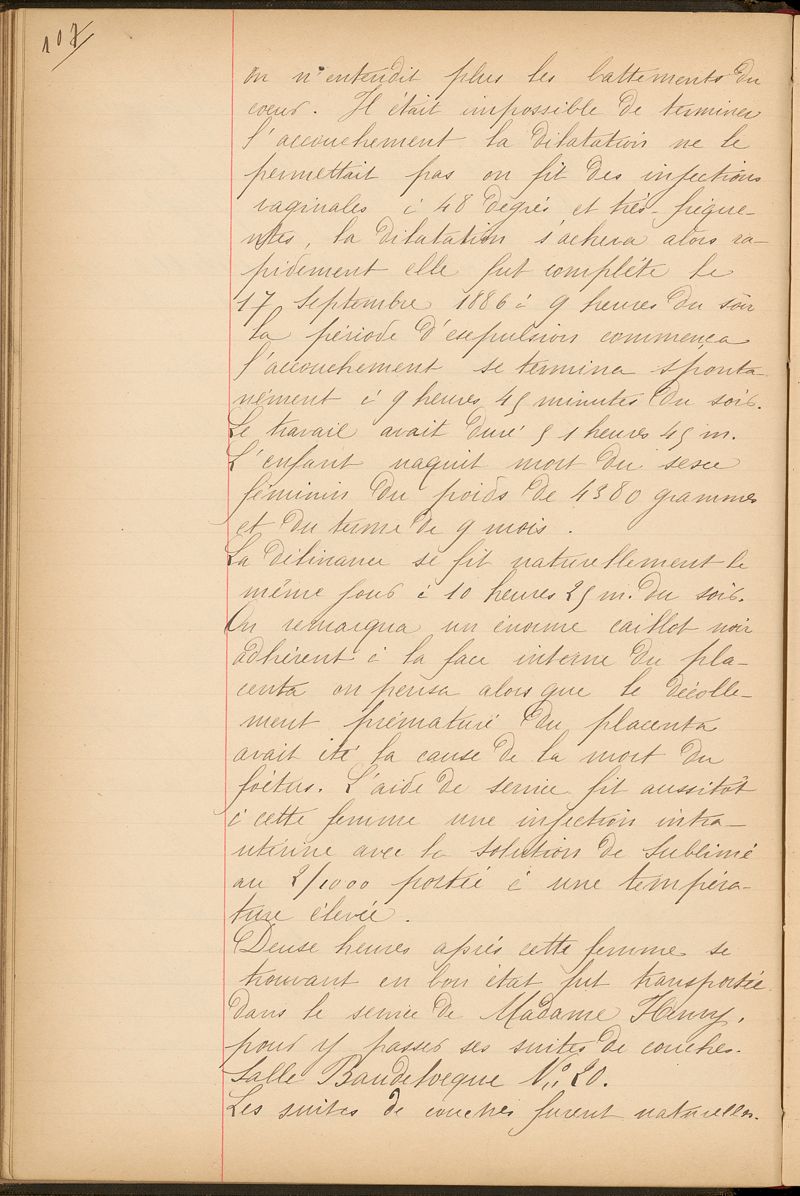 107
on n'entendit plus les battements du
cœur. Il était impossible de terminer
l'accouchement la dilatation ne le
permettait pas on fit des injections
vaginales à 48 degrés et très-fréque-
ntes, la dilatation s'acheva alors ra-
pidement elle fut complète le
17 Septembre 1886 à 9 heures du soir
la période d'expulsion commença
l'accouchement se termina sponta
nément à 9 heures 45 minutes du soir.
Le travail avait duré 51 heures 45 m.
L'enfant naquit mort du sexe
féminin du poids de 4380 grammes
et du terme de 9 mois.
La délivrance se fit naturellement le
même jour à 10 heures 25 m. du soir.
On remarqua un énorme caillot noir
adhérent à la face interne du pla-
centa on pensa alors que le décolle-
ment prématuré du placenta
avait été la cause de la mort du
foétus. L'aide de service fit aussitôt
à cette femme une injection intra-
utérine avec la solution de Sublimé
au 2/1000 portée à une tempéra-
ture élevée.
Deuxe heures après cette femme se
trouvant en bon état fut transportée
dans le service de Madame Henry,
pour y passer ses suites de couches.
Salle Baudelocque N° 20.
Les suites de couches furent naturelles.